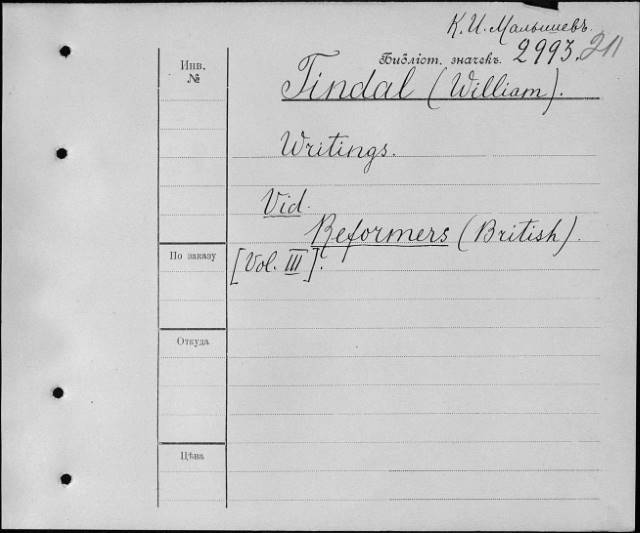 К. И. Малышевъ.
Инв. №
Библіот. значекъ. 2993.211
Tindal (William).
Writings.
Vid.
Reformers (British).
[Vol. III].
По заказу
Откуда
Цѣна